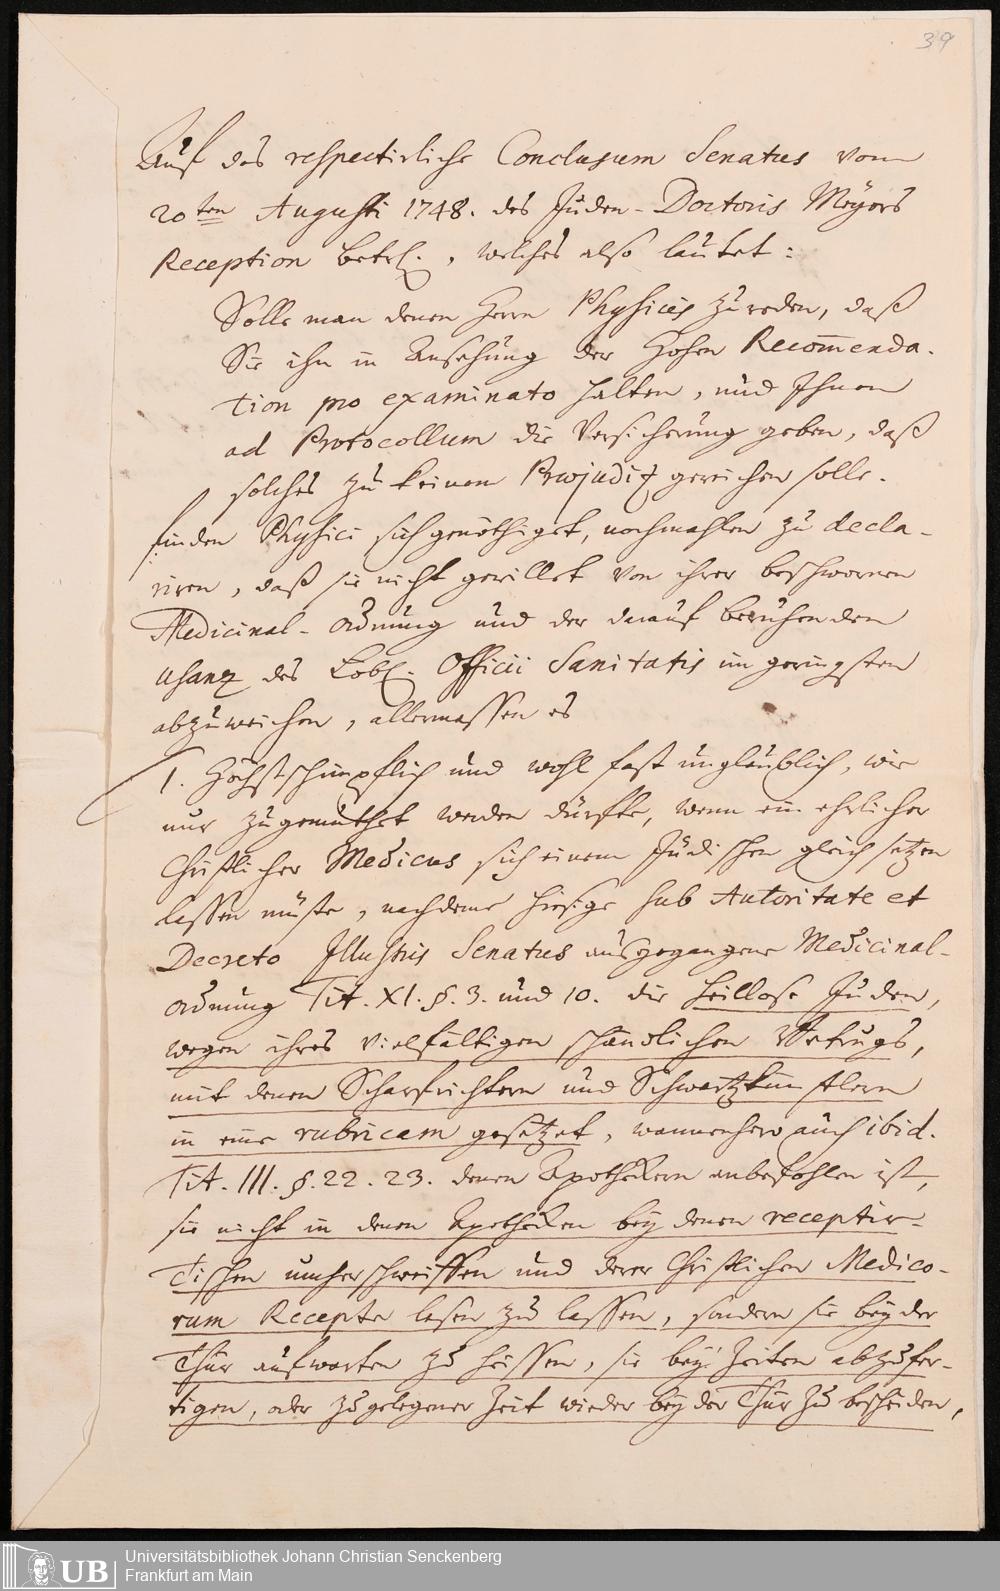 39
Auf das respectirliche Conclusum Senatus vom
20ten Augusti 1748. des Juden-Doctoris Meyers
Reception betrl., welches also lautet:
Solle man denen Herrn Physicis zureden, daß
Sie ihn in Ansehung der Hohen Recom̄enda-
tion pro examinato halten, und Ihnen
ad Protocollum die Versicherung geben, daß
solches zu keinem Praejudiz gereichen solle.
finden Physici sich genöthiget, nochmahlen zu decla-
riren, daß sie nicht gewillet von ihrer beschwornen
Medicinal-Ordnung und der darauf beruhenden
usanz des Löbl. Officii Sanitatis im geringsten
abzuweichen, allermassen es
1. Höchstschimpflich und wohl fast unglaublich, wie
nur zugemuthet werden dürffte, wenn ein ehrlicher
Christlicher Medicus sich einem Jüdischen gleich setzen
lassen müste, nachdeme hiesige sub Autoritate et
Decreto Illustris Senatus ausgegangene Medicinal-
Ordnung Tit. XI. §. 3. und 10. die heillose Juden,
wegen ihres vielfältigen schändlichen Betrugs,
mit denen Scharfrichtern und Schwartzkünstlern
in eine rubricam gesetzet, wannenhero auch ibid.
Tit. III. §. 22. 23. denen Apothekern anbefohlen ist,
sie nicht in denen Apotheken bey denen receptir-
Tischen umherschweiffen und derer Christlichen Medico-
rum Recepte lesen zu lassen, sondern sie bey der
Thür aufwarten zu heissen, sie bey Zeiten abzufer-
tigen, oder zu gelegener Zeit wieder bey der Thür zu bescheiden,
UB
Universitätsbibliothek Johann Christian Senckenberg
Frankfurt am Main